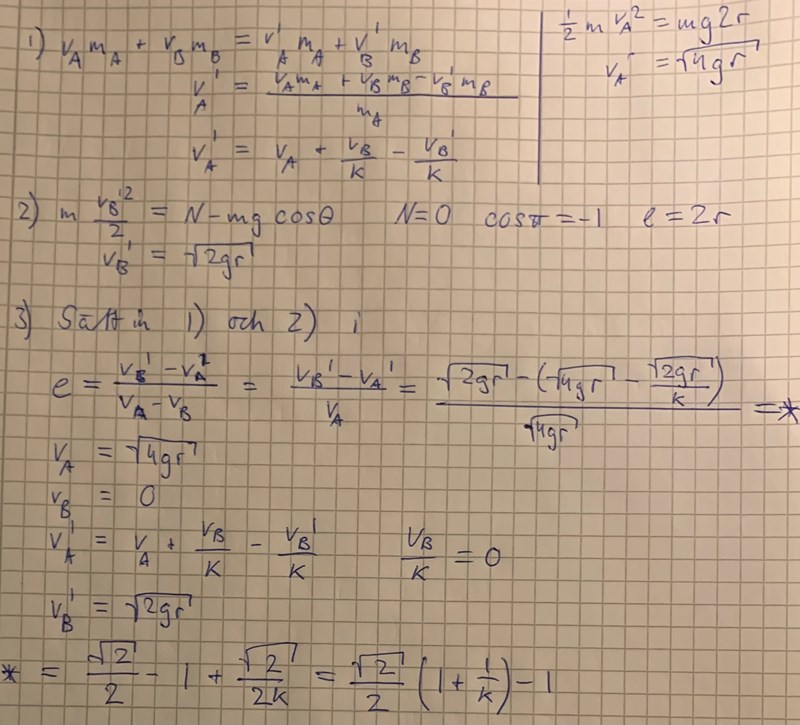 1) v_A m_A + v_B m_B = v'_A m_A + v'_B m_B
v'_A = (v_A m_A + v_B m_B - v_B' m_B) / m_A
v_A' = v_A + v_B/k - v_B'/k
1/2 m v_A^2 = mg2r
v_A = √4gr
2) m v_B'^2/2 = N - mg cosθ N=0 cosπ = -1 l = 2r
v_B' = √2gr
3) Sätt in 1) och 2) i
e = (v_B' - v_A')/(v_A - v_B) = (v_B' - v_A')/v_A = (√2gr - (√4gr - √2gr/k))/√4gr = *
v_A = √4gr
v_B = 0
v_A' = v_A + v_B/k - v_B'/k v_B/k = 0
v_B' = √2gr
* = √2/2 - 1 + √2/2k = √2/2 (1 + 1/k) - 1